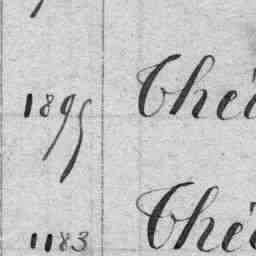 1895 Thé
1183 Thé